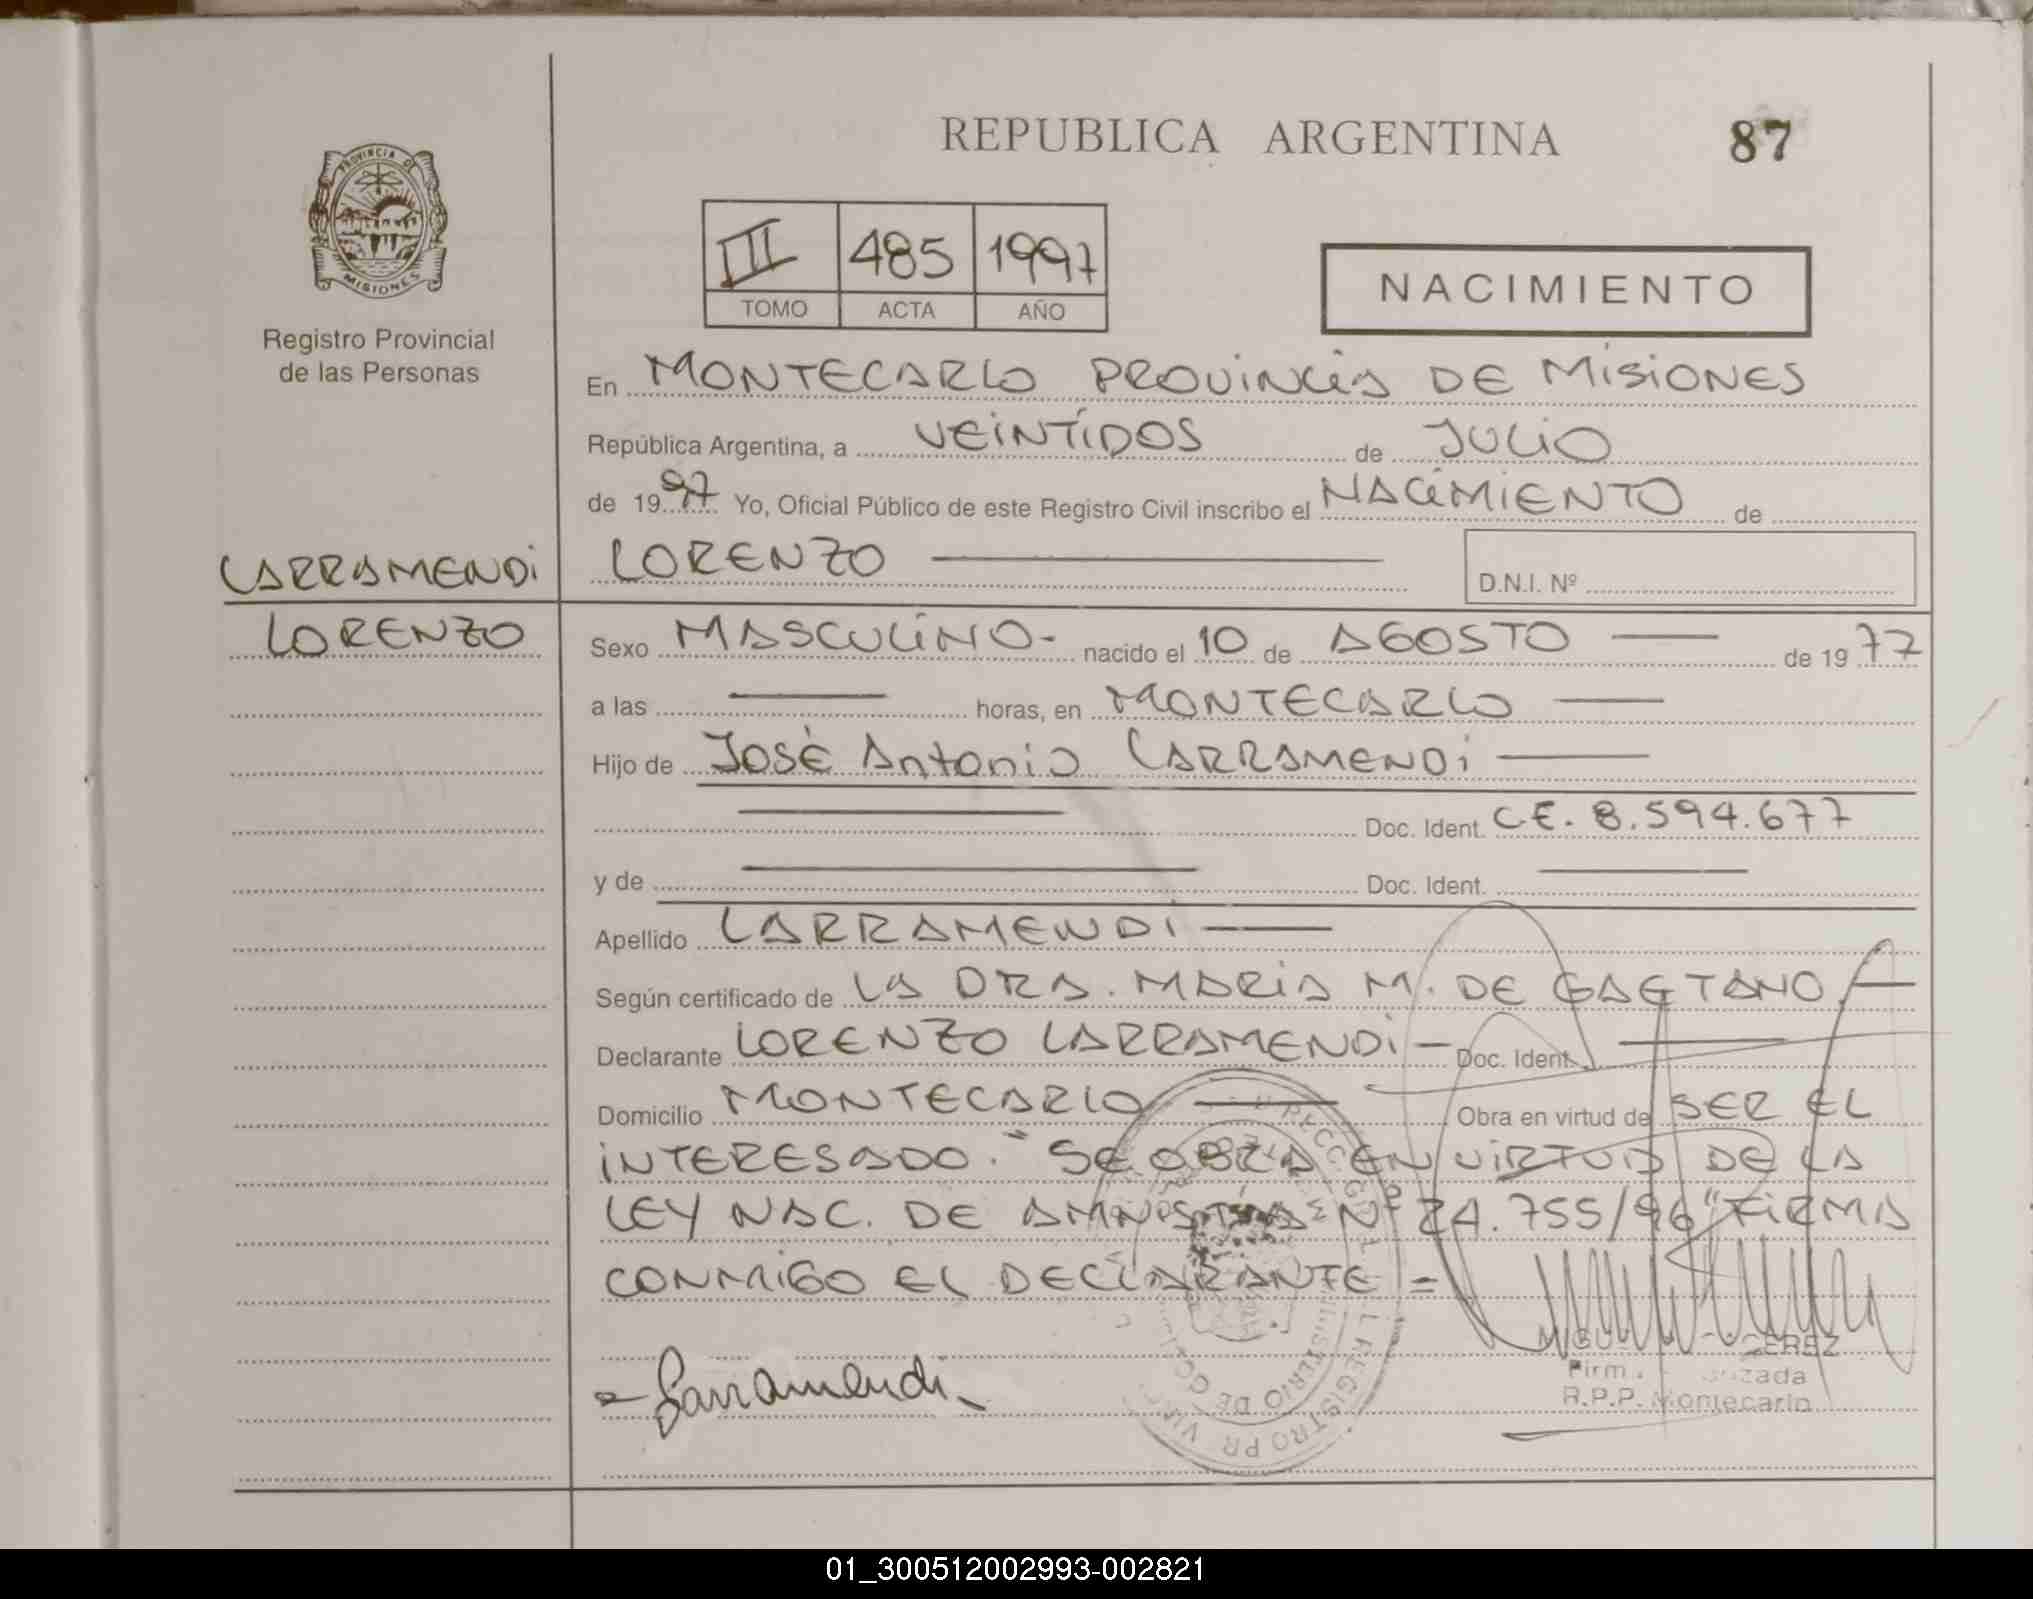 PROVINCIA DE
MISIONES
Registro Provincial
de las Personas
REPUBLICA ARGENTINA 87
III 485 1997
TOMO ACTA AÑO
NACIMIENTO
En MONTECARLO PROVINCIA DE MISIONES
República Argentina, a VEINTIDOS de JULIO
de 1997 Yo, Oficial Público de este Registro Civil inscribo el NACIMIENTO de
LARRAMENDI LORENZO D.N.I. Nº
LORENZO Sexo MASCULINO- nacido el 10 de AGOSTO de 1977
a las horas, en MONTECARLO
Hijo de JOSÉ Antonio LARRAMENDI
Doc. Ident. C.E. 8.594.677
y de Doc. Ident.
Apellido LARRAMENDI
Según certificado de LA DRA. MARIA M. DE GAETANO.
Declarante LORENZO LARRAMENDI Doc. Ident.
Domicilio MONTECARLO Obra en virtud de SER EL
INTERESADO. "SE OBRA EN VIRTUD DE LA
LEY NAC. DE AMNISTIA Nº 24.755/96" FIRMA
CONMIGO EL DECLARANTE =
Larramendi
R.P.P. Montecarlo
01_300512002993-002821